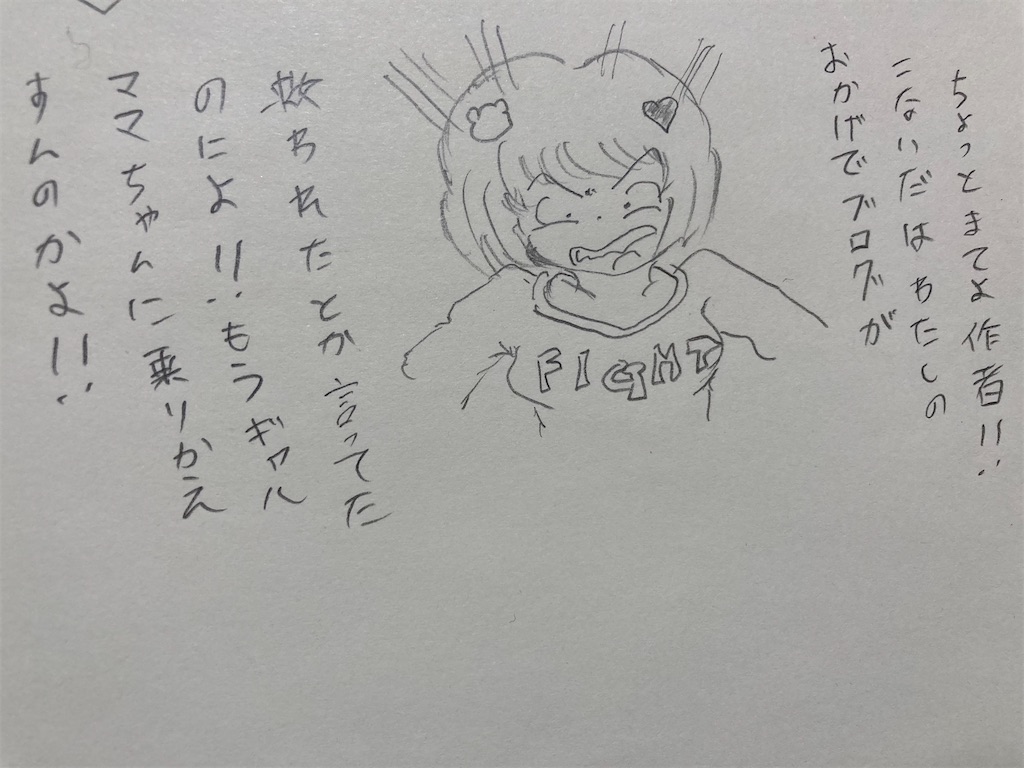 ちょっとまてよ作者!!
こないだはわたしの
おかげでブログが
FIGHT
救われたとか言ってた
のによ!!もうギャル
ママちゃんに乗りかえ
すんのかよ!!